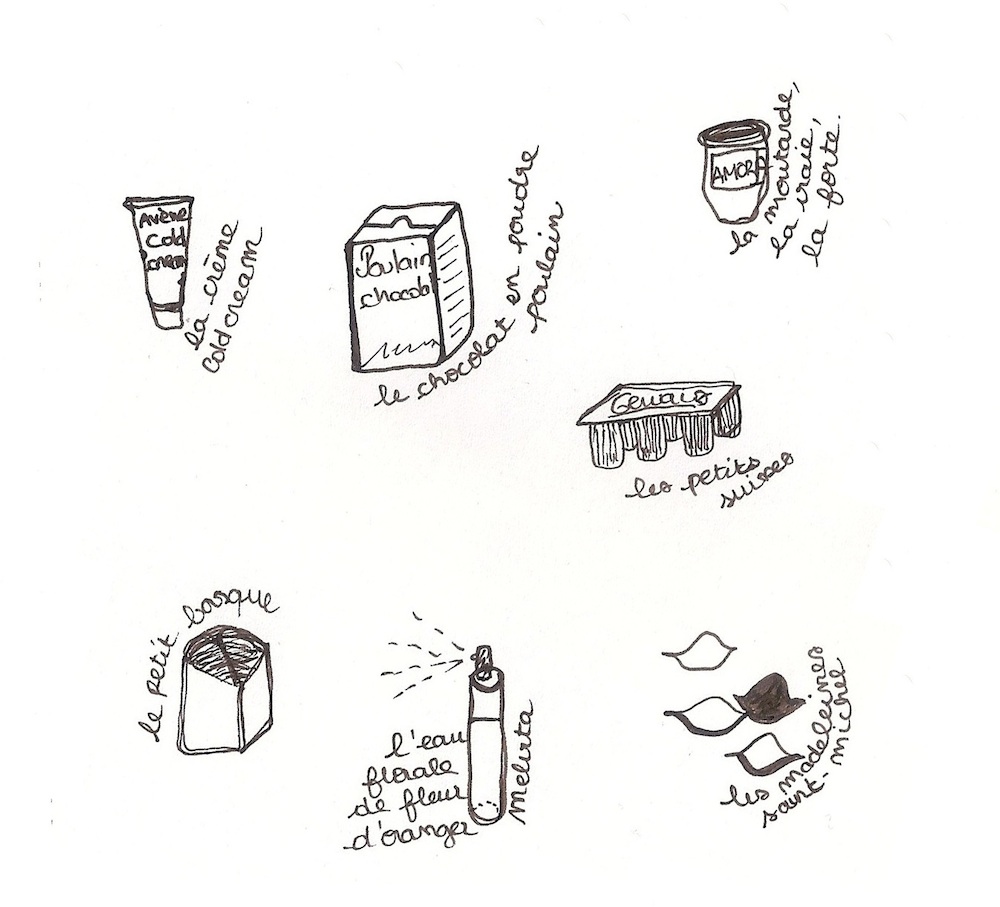 Avène
Cold
cream
la crème
cold cream
Poulain
chocolat
le chocolat en poudre
poulain
AMORA
la moutarde,
la vraie,
la forte.
Gervais
les petits
suisses
le petit basque
l'eau
florale
de fleur
d'oranger
melvita
les madeleines
saint-michel